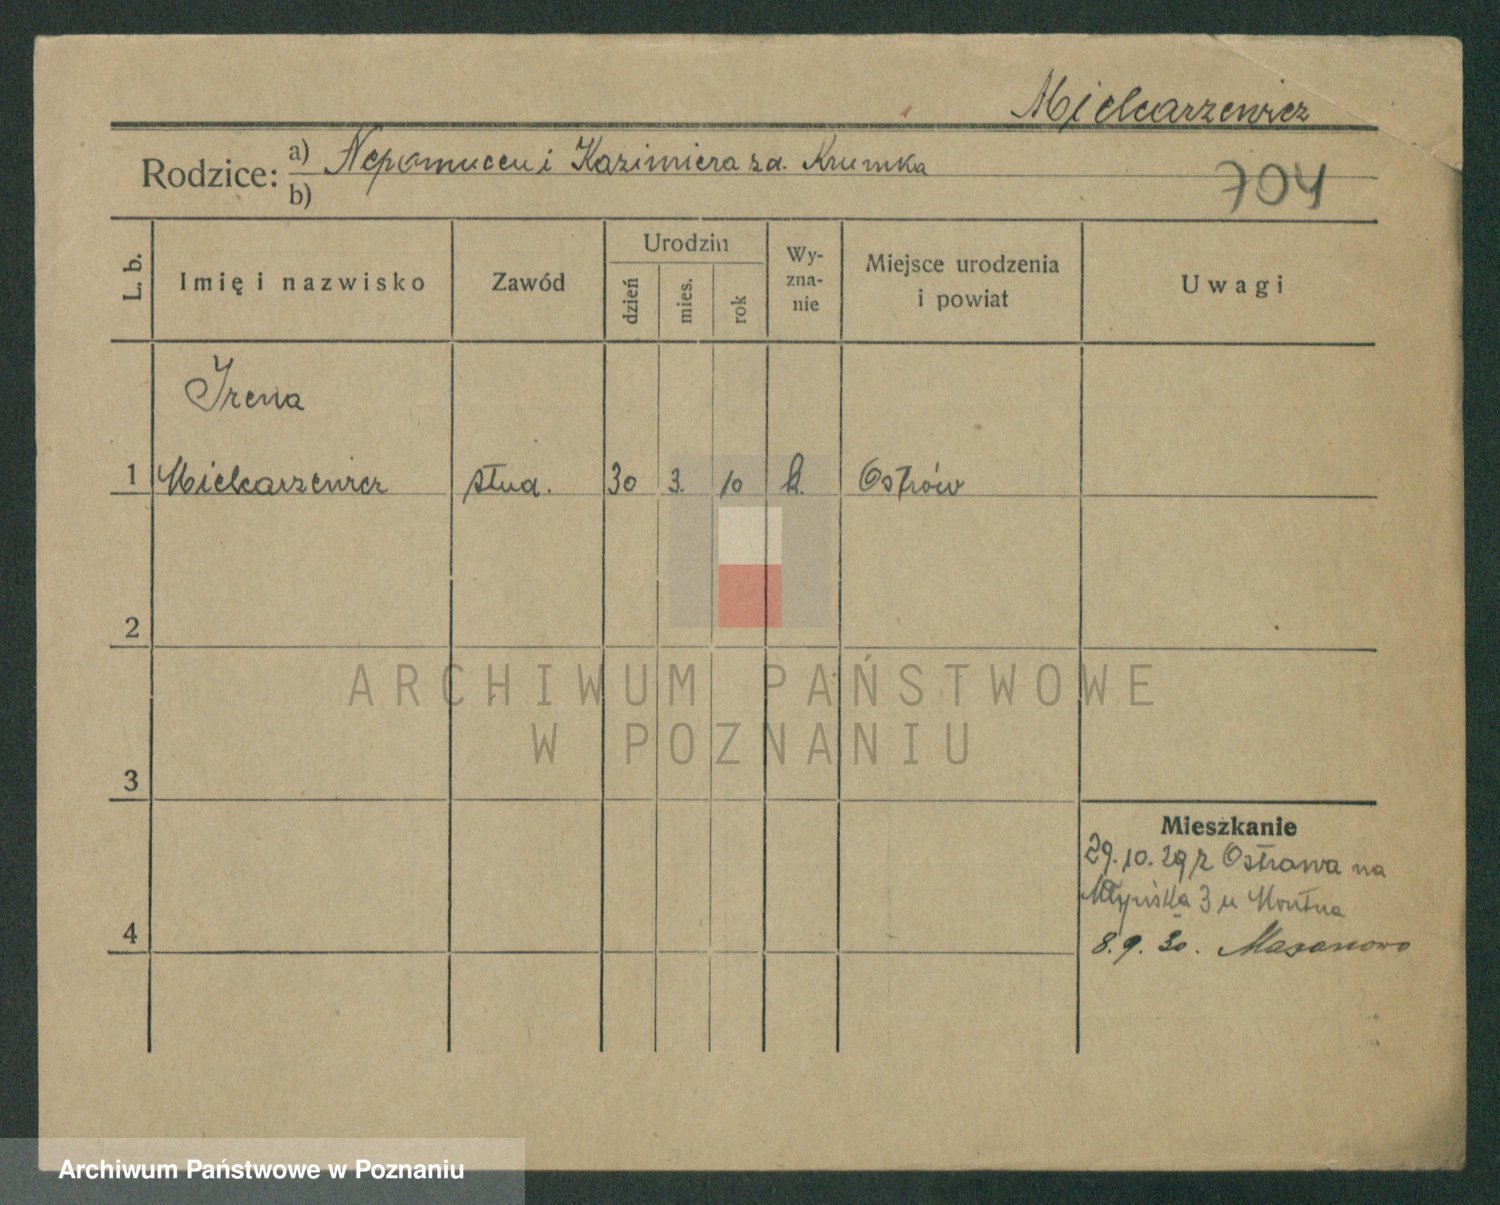 Mielcarzewicz
Rodzice: a) Nepomucen i Kazimiera zd. Krumka
b)
704
L. b.
Imię i nazwisko
Zawód
Urodzin
dzień
mies.
rok
Wy-
zna-
nie
Miejsce urodzenia
i powiat
Uwagi
Irena
1 Mielcarzewicz stud. 30 3. 10 k. Ostrów
2
ARCHIWUM PAŃSTWOWE
W POZNANIU
3
Mieszkanie
29.10.29 z Ostrowa na
3 u
4
8.9.30. Masanowo
Archiwum Państwowe w Poznaniu